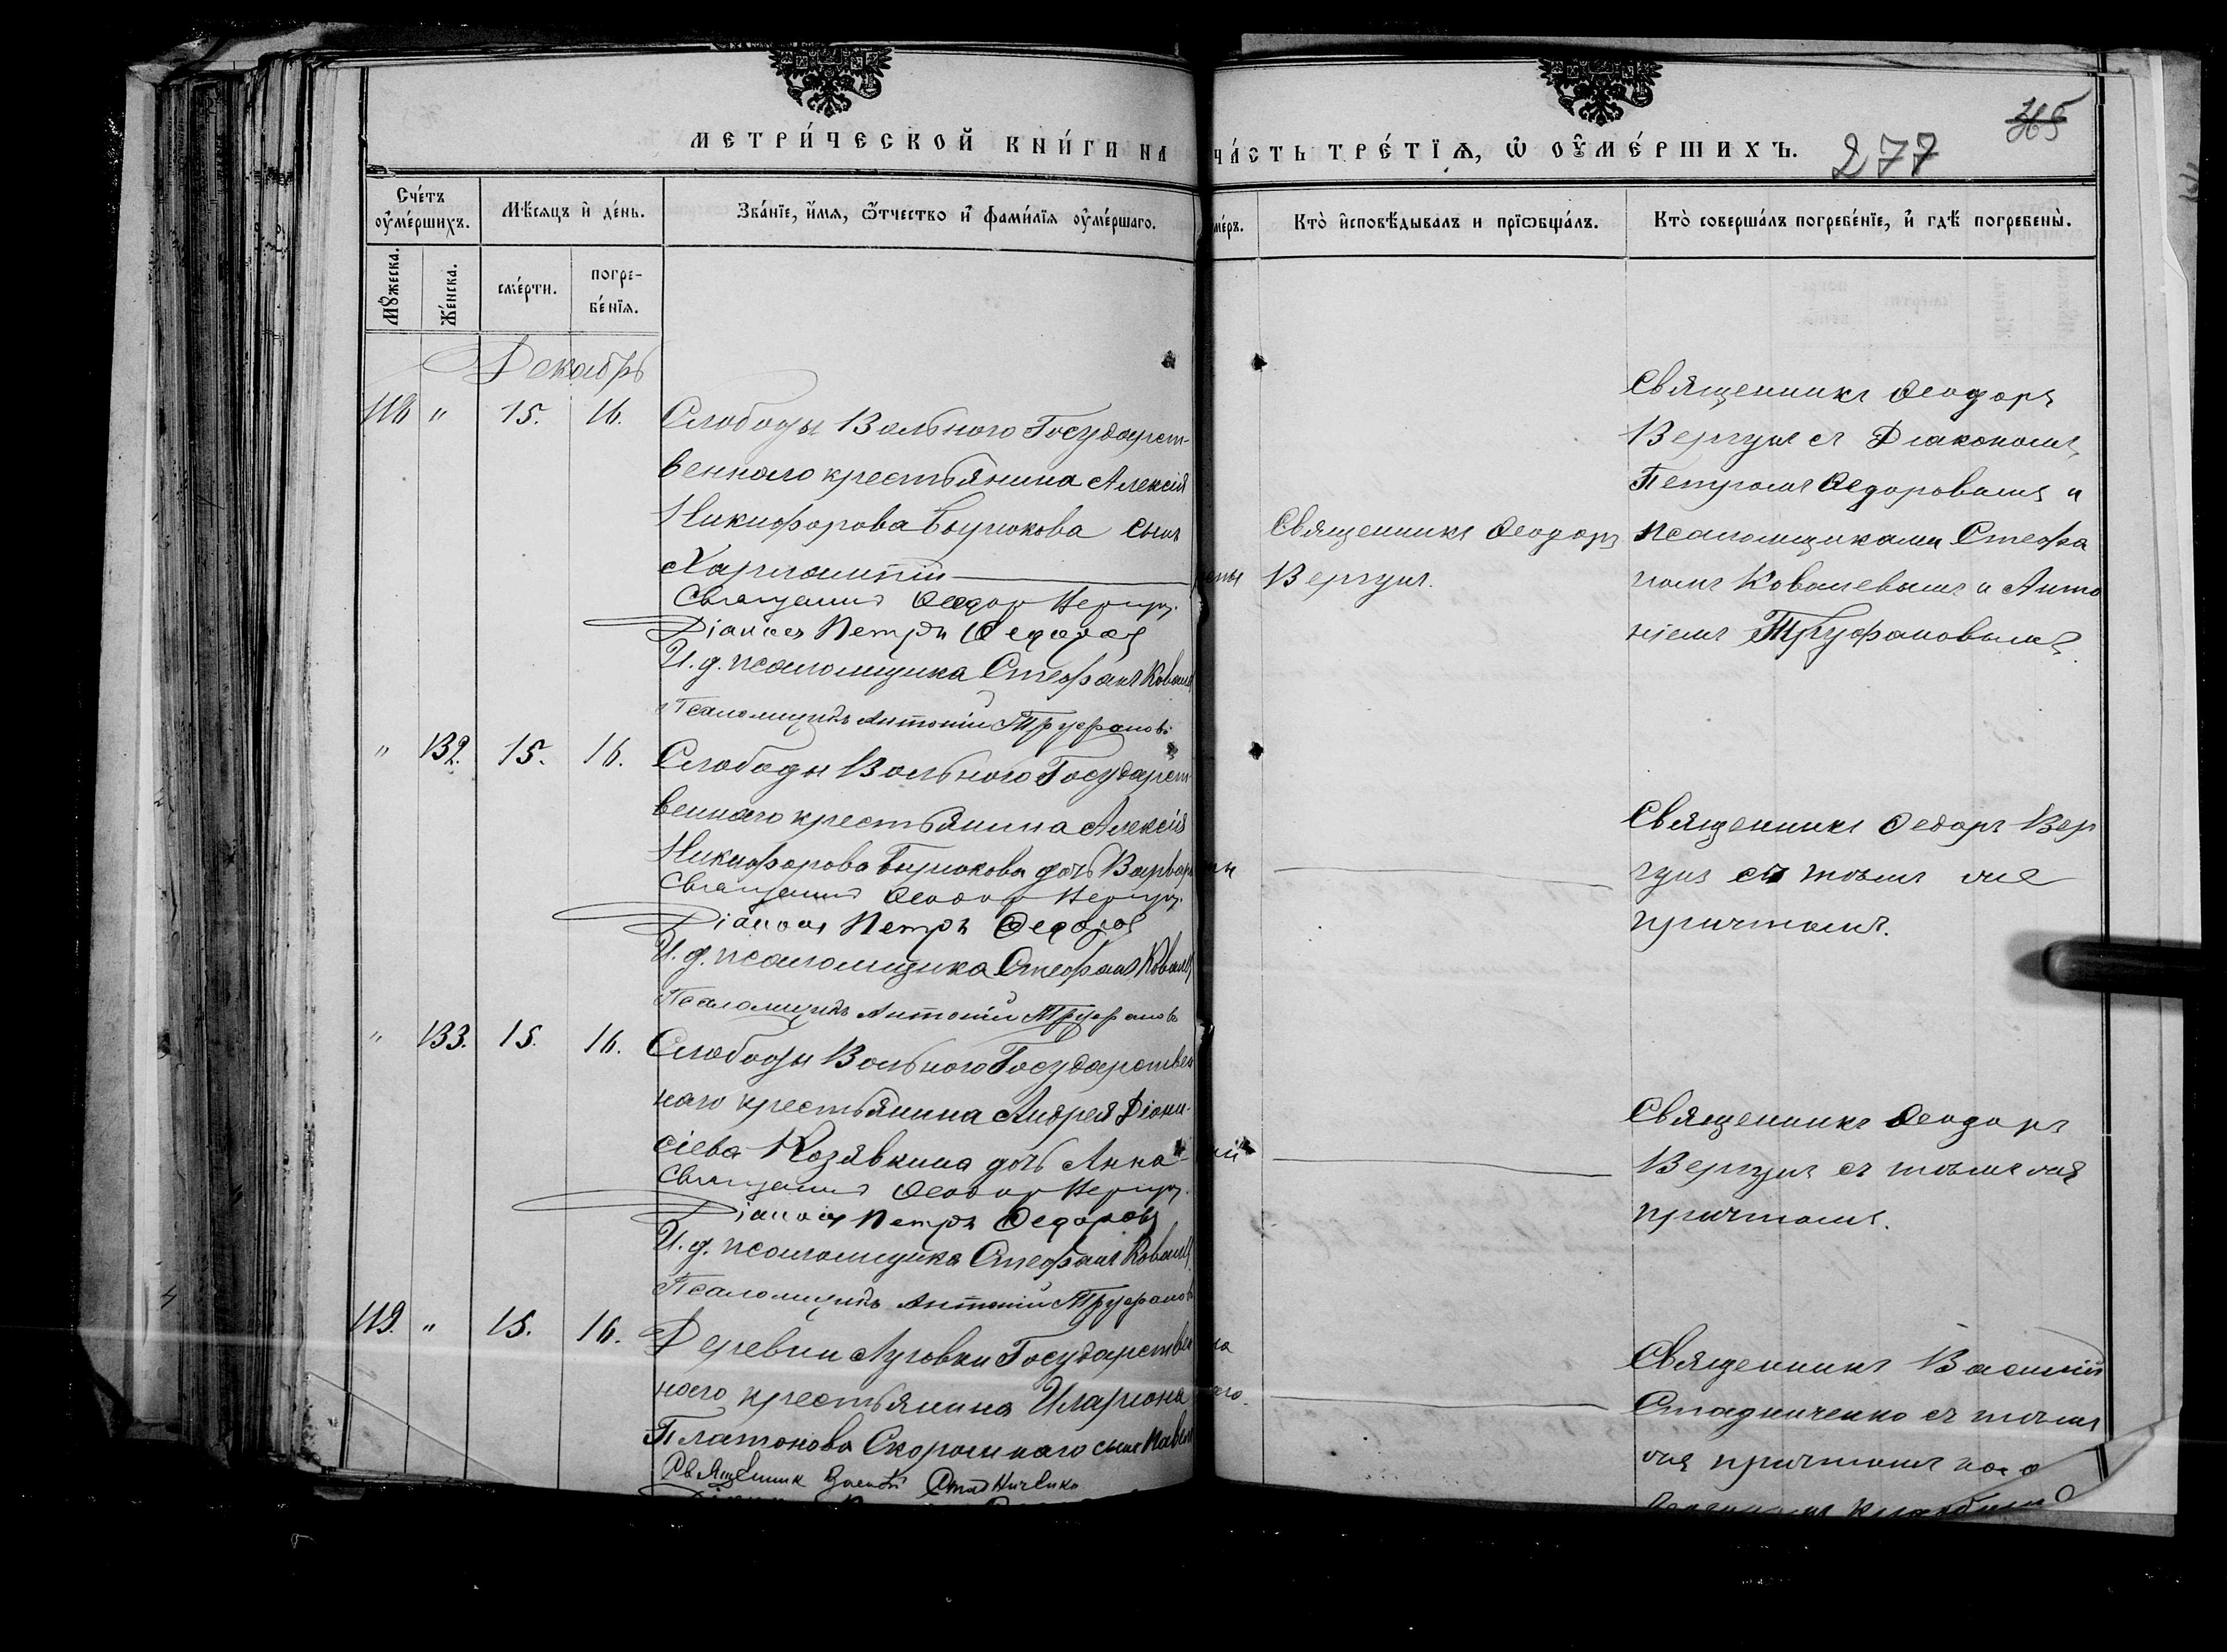 МЕТРИ́ЧЕСКОЙ КНИ́ГИ НА
ЧА́СТЬ ТРЕ́ТЇѦ, Ѡ ОУ҆МЕ́РШИХЪ.
277
365
Сче́тъ
оу҆ме́ршихъ.
Мѣ́сяцъ и҆ де́нь.
Зва́нїе, и҆́мя, ѻ҆́тчество и҆ фами́лїя оу҆ме́ршаго.
ме́ръ.
Кто̀ и҆сповѣ́дывалъ и прїѡбща́лъ.
Кто̀ соверша́лъ погребе́нїе, и҆ гдѣ̀ погребены̀.
Мꙋ́жеска.
Же́нска.
сме́рти.
погре-
бе́нїя.
Декабрь
118 " 15. 16.
Слободы Вольного Государст-
веннаго крестьянина Алексія
Никифорова Бирюкова сынъ
Харлампій
Священникъ Феодоръ Вергун
Діаконъ Петръ Федоровъ
И. д. псаломщика Стефанъ Ковалев
Псаломщикъ Антоній Труфановъ
Священникъ Феодоръ
Вергунъ.
Священникъ Феодоръ
Вергунъ съ Діакономъ
Петромъ Федоровымъ и
псаломщиками Стефа
номъ Ковалевымъ и Анто
ніемъ Труфановымъ.
" 132. 15. 16.
Слободы Вольного Государст
веннаго крестьянина Алексія
Никифорова Бирюкова дочь Варвар
Священникъ Феодоръ Вергун
Діаконъ Петръ Федоровъ
И. д. псаломщика Стефанъ Ковалев
Псаломщикъ Антоній Труфановъ
Священникъ Федоръ Вер
гунъ съ тѣмъ же
причтомъ.
" 133. 15. 16.
Слободы Вольного Государствен
наго крестьянина Андрея Діони-
сіева Козявкина дочь Анна
Священникъ Феодоръ Вергун
Діаконъ Петръ Федоровъ
И. д. псаломщика Стефанъ Ковалев
Псаломщикъ Антоній Труфановъ
Священникъ Феодоръ
Вергунъ съ тѣмъ же
причтомъ.
119. " 15. 16.
Деревни Луговки Государствен
наго крестьянина Илариона
Платонова Скоромнаго сынъ Павел
Священник Василій Стадниченко
Священникъ Василій
Стадниченко съ тѣмъ
же причтомъ на